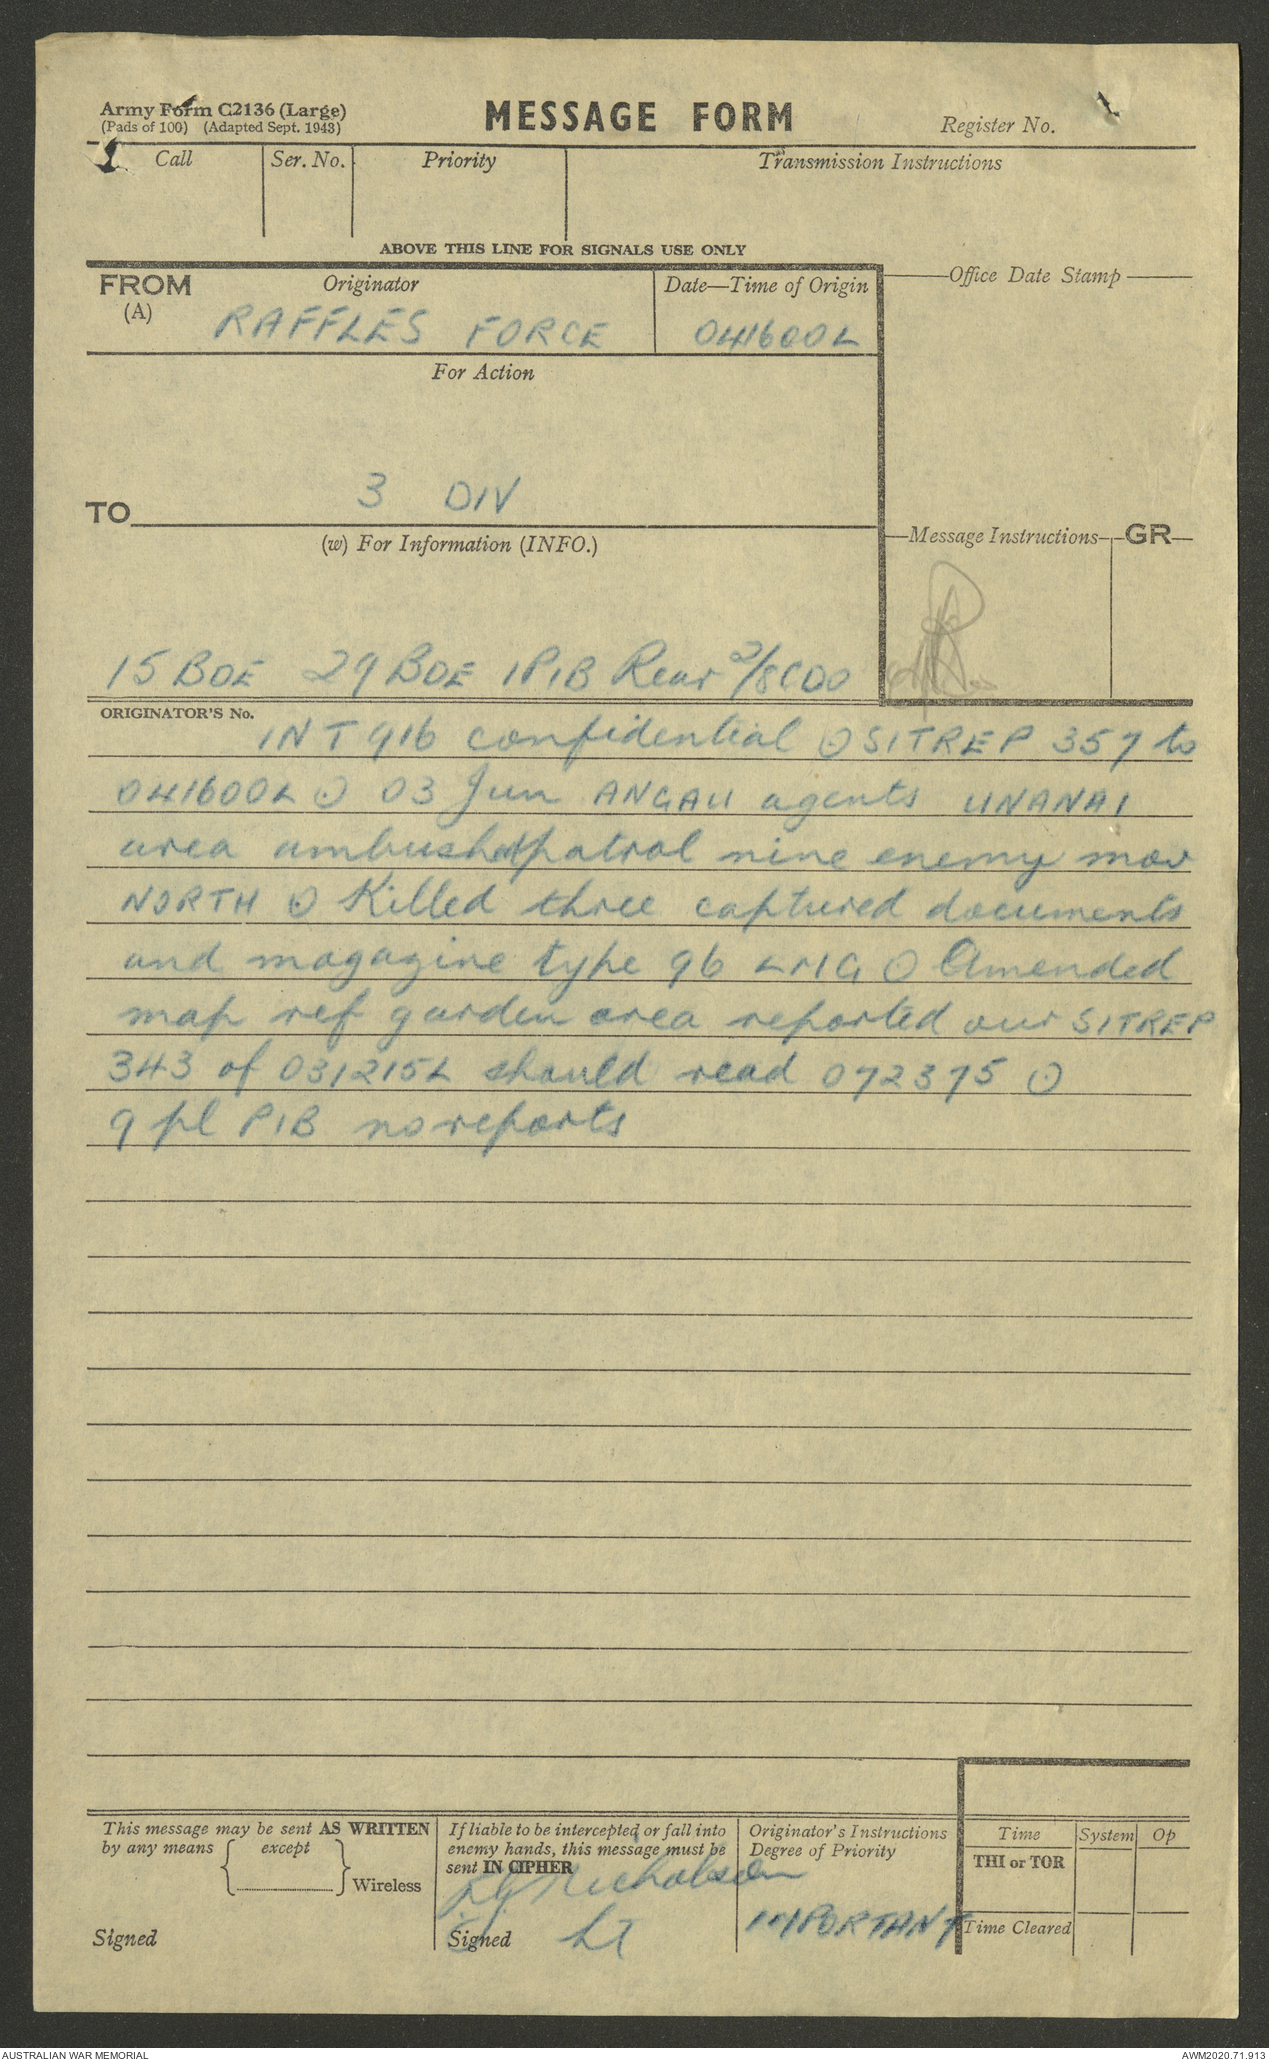 Army Form C2136 (Large)
(Pads of 100) (Adapted Sept. 1943)
MESSAGE FORM
Register No.
Call
Ser. No.
Priority
Transmission Instructions
ABOVE THIS LINE FOR SIGNALS USE ONLY
FROM
(A)
Originator
RAFFLES FORCE
Date—Time of Origin
041600L
Office Date Stamp
For Action
TO
3 DIV
(w) For Information (INFO.)
Message Instructions
GR
15 BDE 29 BDE 1 PIB Rear 2/8 CDO
ORIGINATOR'S No.
INT 916 confidential ⊙ SITREP 357 to
041600L ⊙ 03 Jun ANGAU agents UNANAI
area ambushed patrol nine enemy mov
NORTH ⊙ Killed three captured documents
and magazine type 96 LMG ⊙ Amended
map ref garden area reported our SITREP
343 of 031215L should read 072375 ⊙
9 pl PIB no reports
This message may be sent AS WRITTEN
by any means
except
Wireless
Signed
If liable to be intercepted or fall into
enemy hands, this message must be
sent IN CIPHER
Nicholson
Signed Lt
Originator's Instructions
Degree of Priority
IMPORTANT
Time
System
Op
THI or TOR
Time Cleared
AUSTRALIAN WAR MEMORIAL
AWM2020.71.913